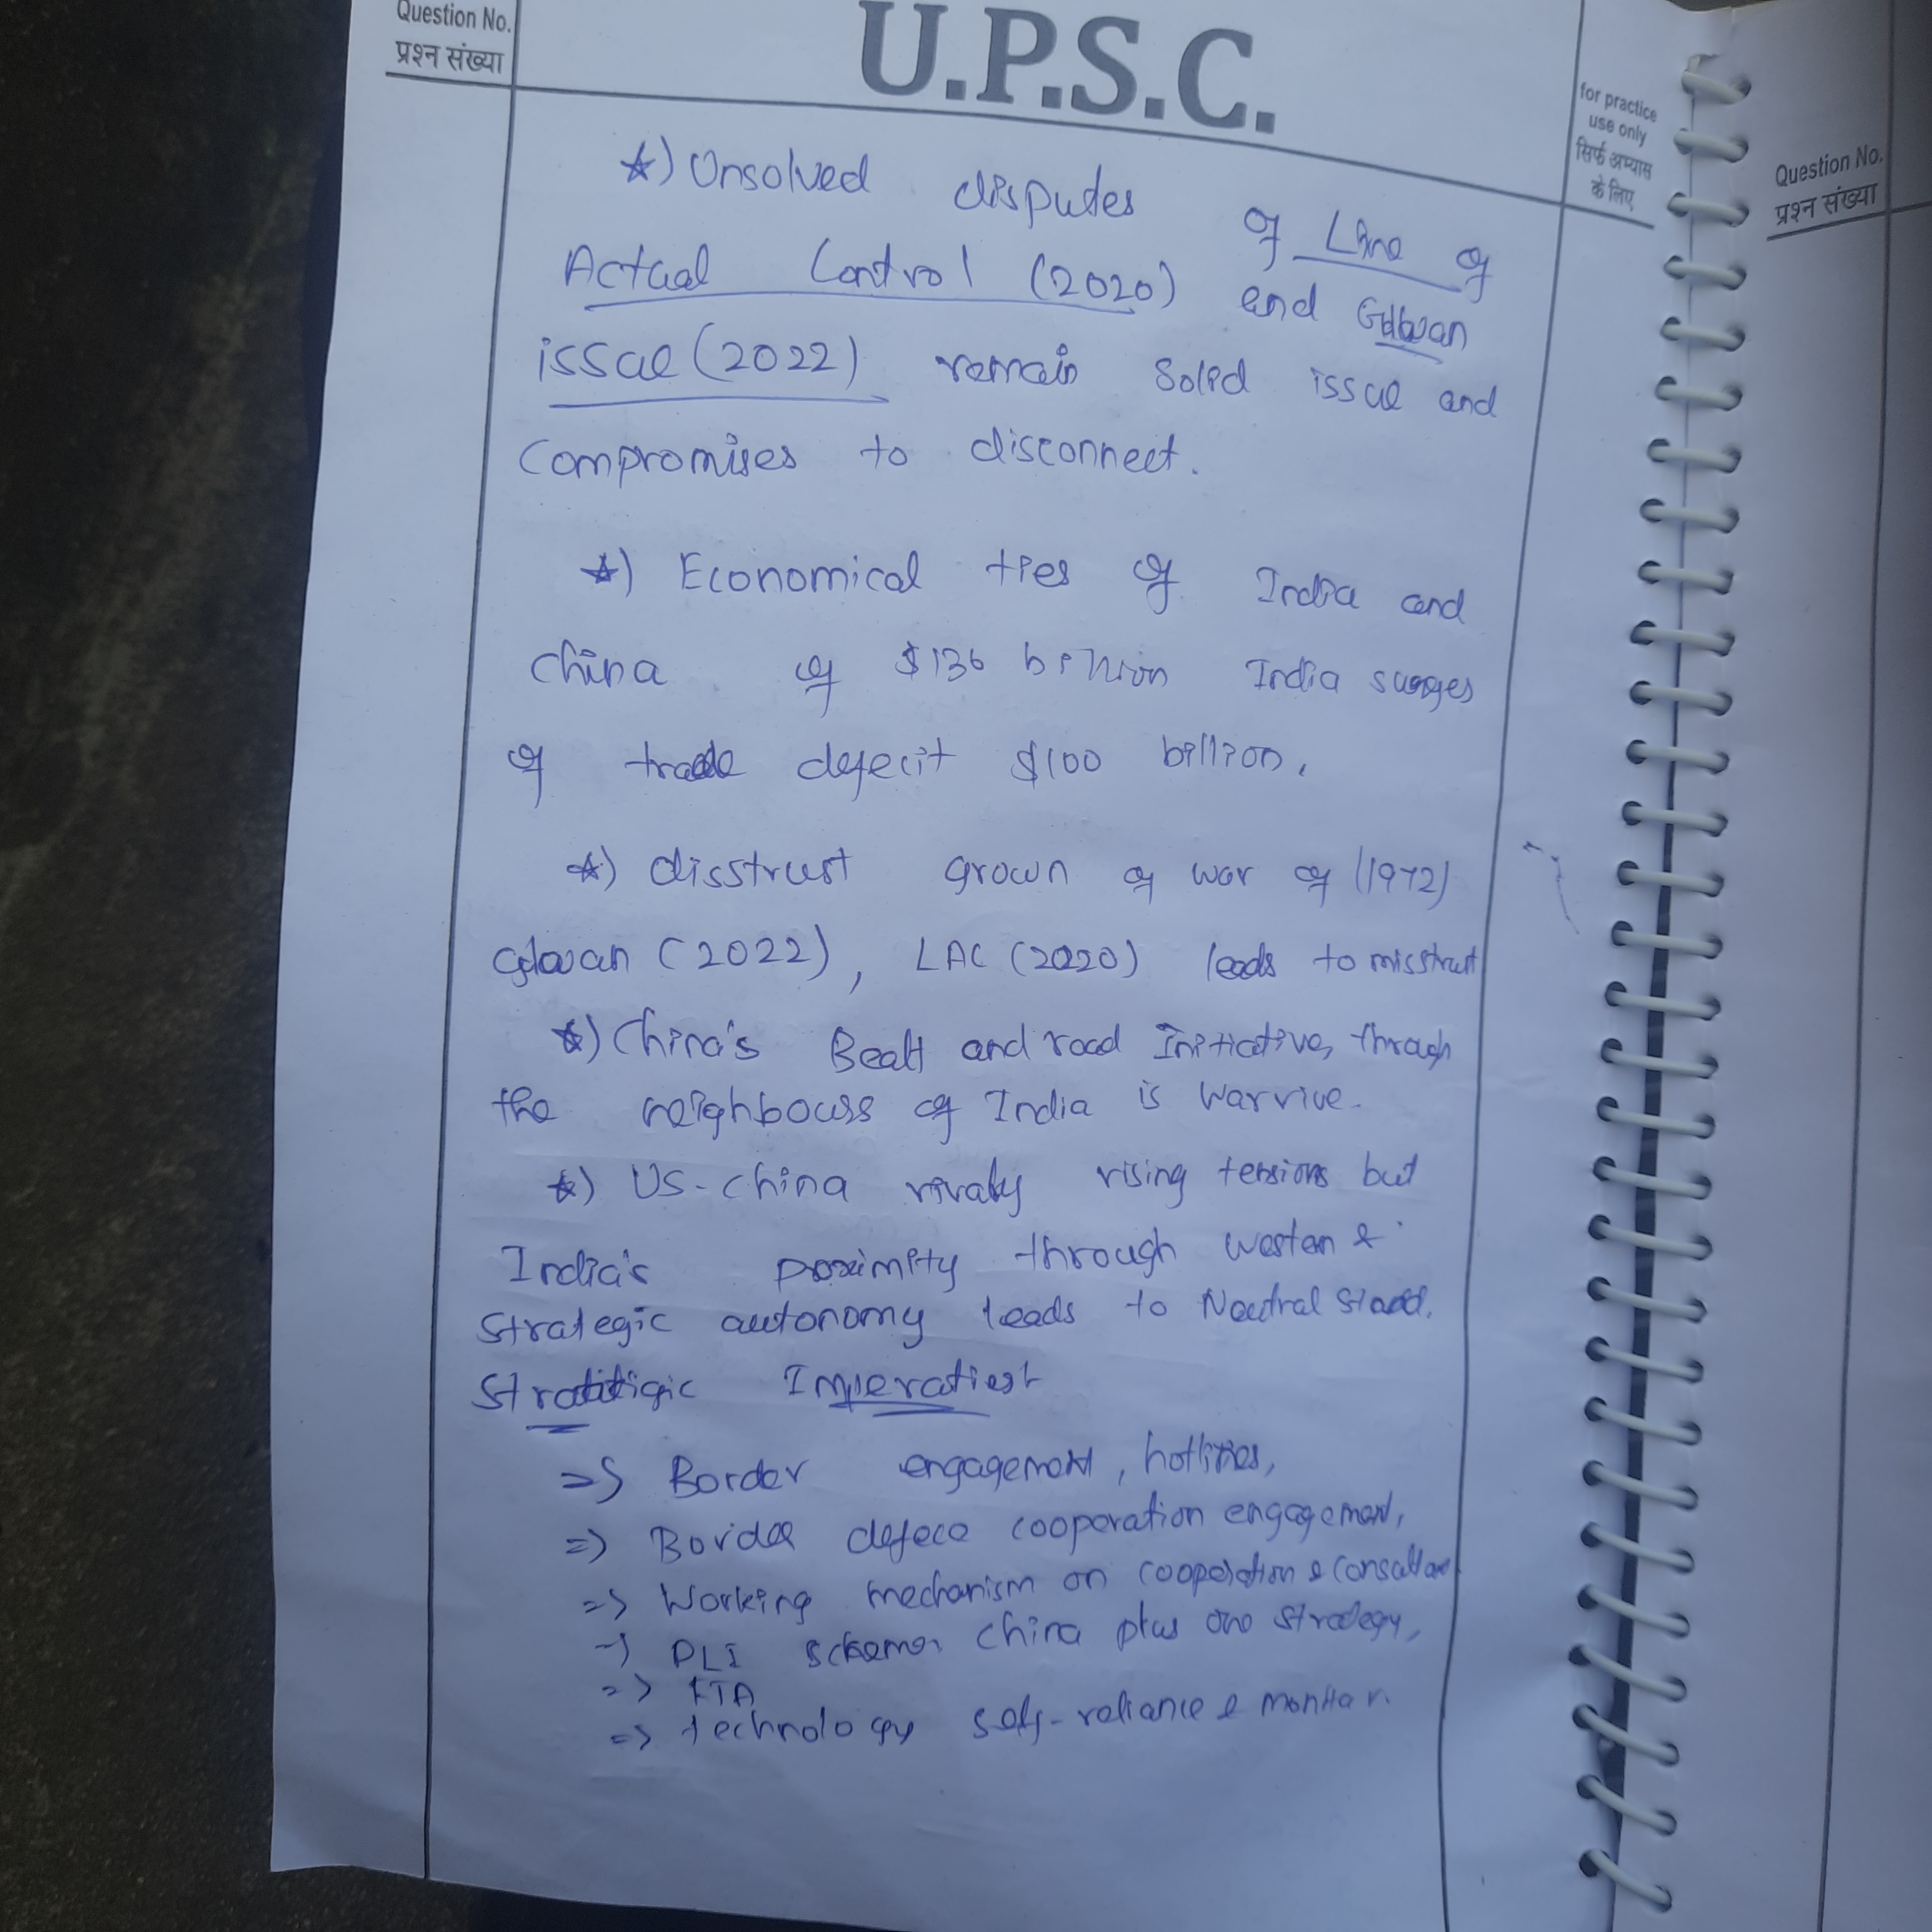 Question No.
प्रश्न संख्या
U.P.S.C.
for practice
use only
सिर्फ अभ्यास
के लिए
Question No.
प्रश्न संख्या
☆) Unsolved disputes of Line of
Actual Control (2020) and Galwan
issue (2022) remain solid issue and
compromises to disconnect.
☆) Economical ties of India and
china of $136 billion India surges
of trade defecit $100 billion.
☆) disstrust grown of war of (1972)
Galwan (2022), LAC (2020) leads to misstrust
☆) China's Bealt and road Initiative, through
the neighbours of India is
☆) US-china rivalry rising tensions but
India's proximity through western &
strategic autonomy leads to Neutral stand.
Stratitigic Imperatiest
=> Border engagement, hotlines,
=> Border defece cooperation engagement,
=> Working mechanism on cooperation &
=> PLI scheme, china plus one strategy,
=> FTA
=> technology self-reliance & monitar.